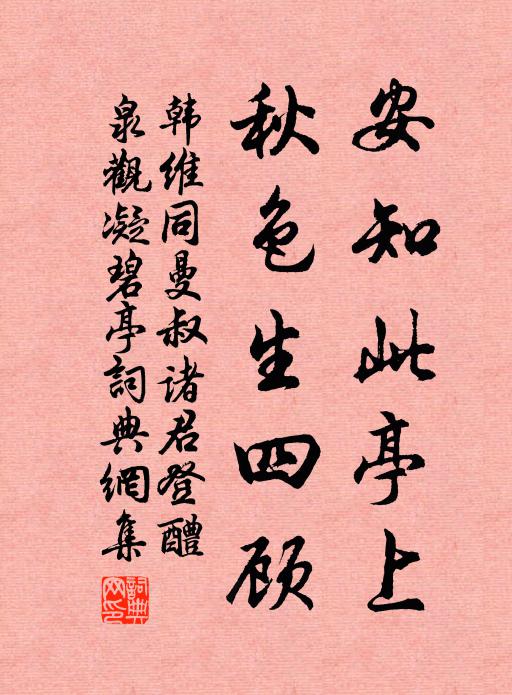 安知此亭上
秋色生四顾
韩维同曼叔诸君登醴
泉觀凝碧亭詞典網集
詞典網印